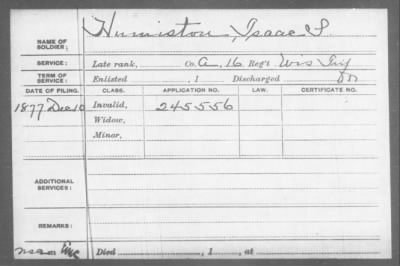 NAME OF SOLDIER: Humiston, Isaac S.
SERVICE: Late rank, Co. A, 16 Reg't Wis Inf
TERM OF SERVICE: Enlisted , 1 Discharged
DATE OF FILING. CLASS. APPLICATION NO. LAW. CERTIFICATE NO.
1877 Dec 10 Invalid, 245556
Widow,
Minor,
ADDITIONAL SERVICES:
REMARKS:
Died , 1 , at